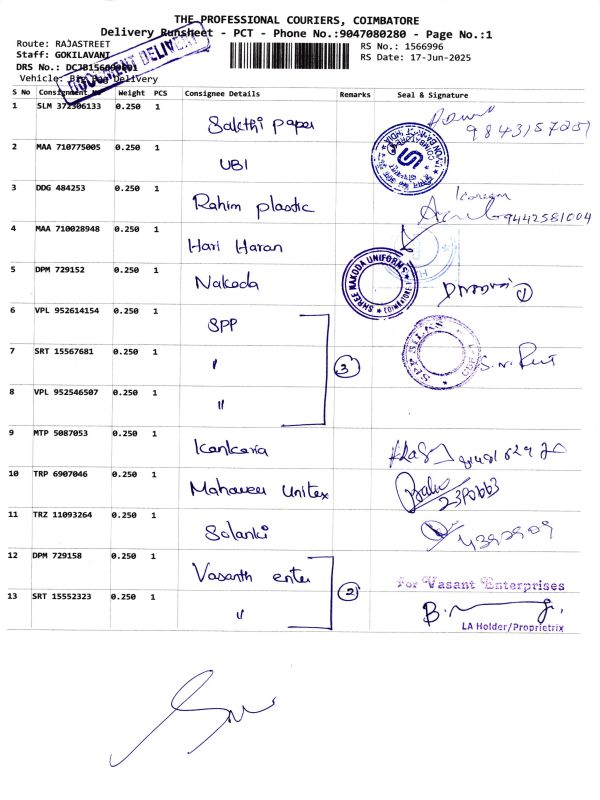 THE PROFESSIONAL COURIERS, COIMBATORE
Delivery Runsheet - PCT - Phone No.:9047080280 - Page No.:1
Route: RAJASTREET
RS No.: 1566996
Staff: GOKILAVANI
RS Date: 17-Jun-2025
DRS No.: DCJB156
DOCUMENT DELIVERY
Vehicle: Delivery
S No Consignment No Weight PCS Consignee Details Remarks Seal & Signature
1 SLM 372306133 0.250 1 Sakthi paper
2 MAA 710775005 0.250 1 UBI
3 DDG 484253 0.250 1 Rahim plastic
Kareem
9442581004
4 MAA 710028948 0.250 1 Hari Haran
5 DPM 729152 0.250 1 Nakoda
SHREE NAKODA UNIFORMS
6 VPL 952614154 0.250 1 SPP
SPP SILKS
7 SRT 15567681 0.250 1 "
3
8 VPL 952546507 0.250 1 "
9 MTP 5087053 0.250 1 Kankaria
10 TRP 6907046 0.250 1 Mahaveer Unitex
11 TRZ 11093264 0.250 1 Solanki
12 DPM 729158 0.250 1 Vasanth enter
2
For Vasant Enterprises
13 SRT 15552323 0.250 1 "
LA Holder/Proprietrix